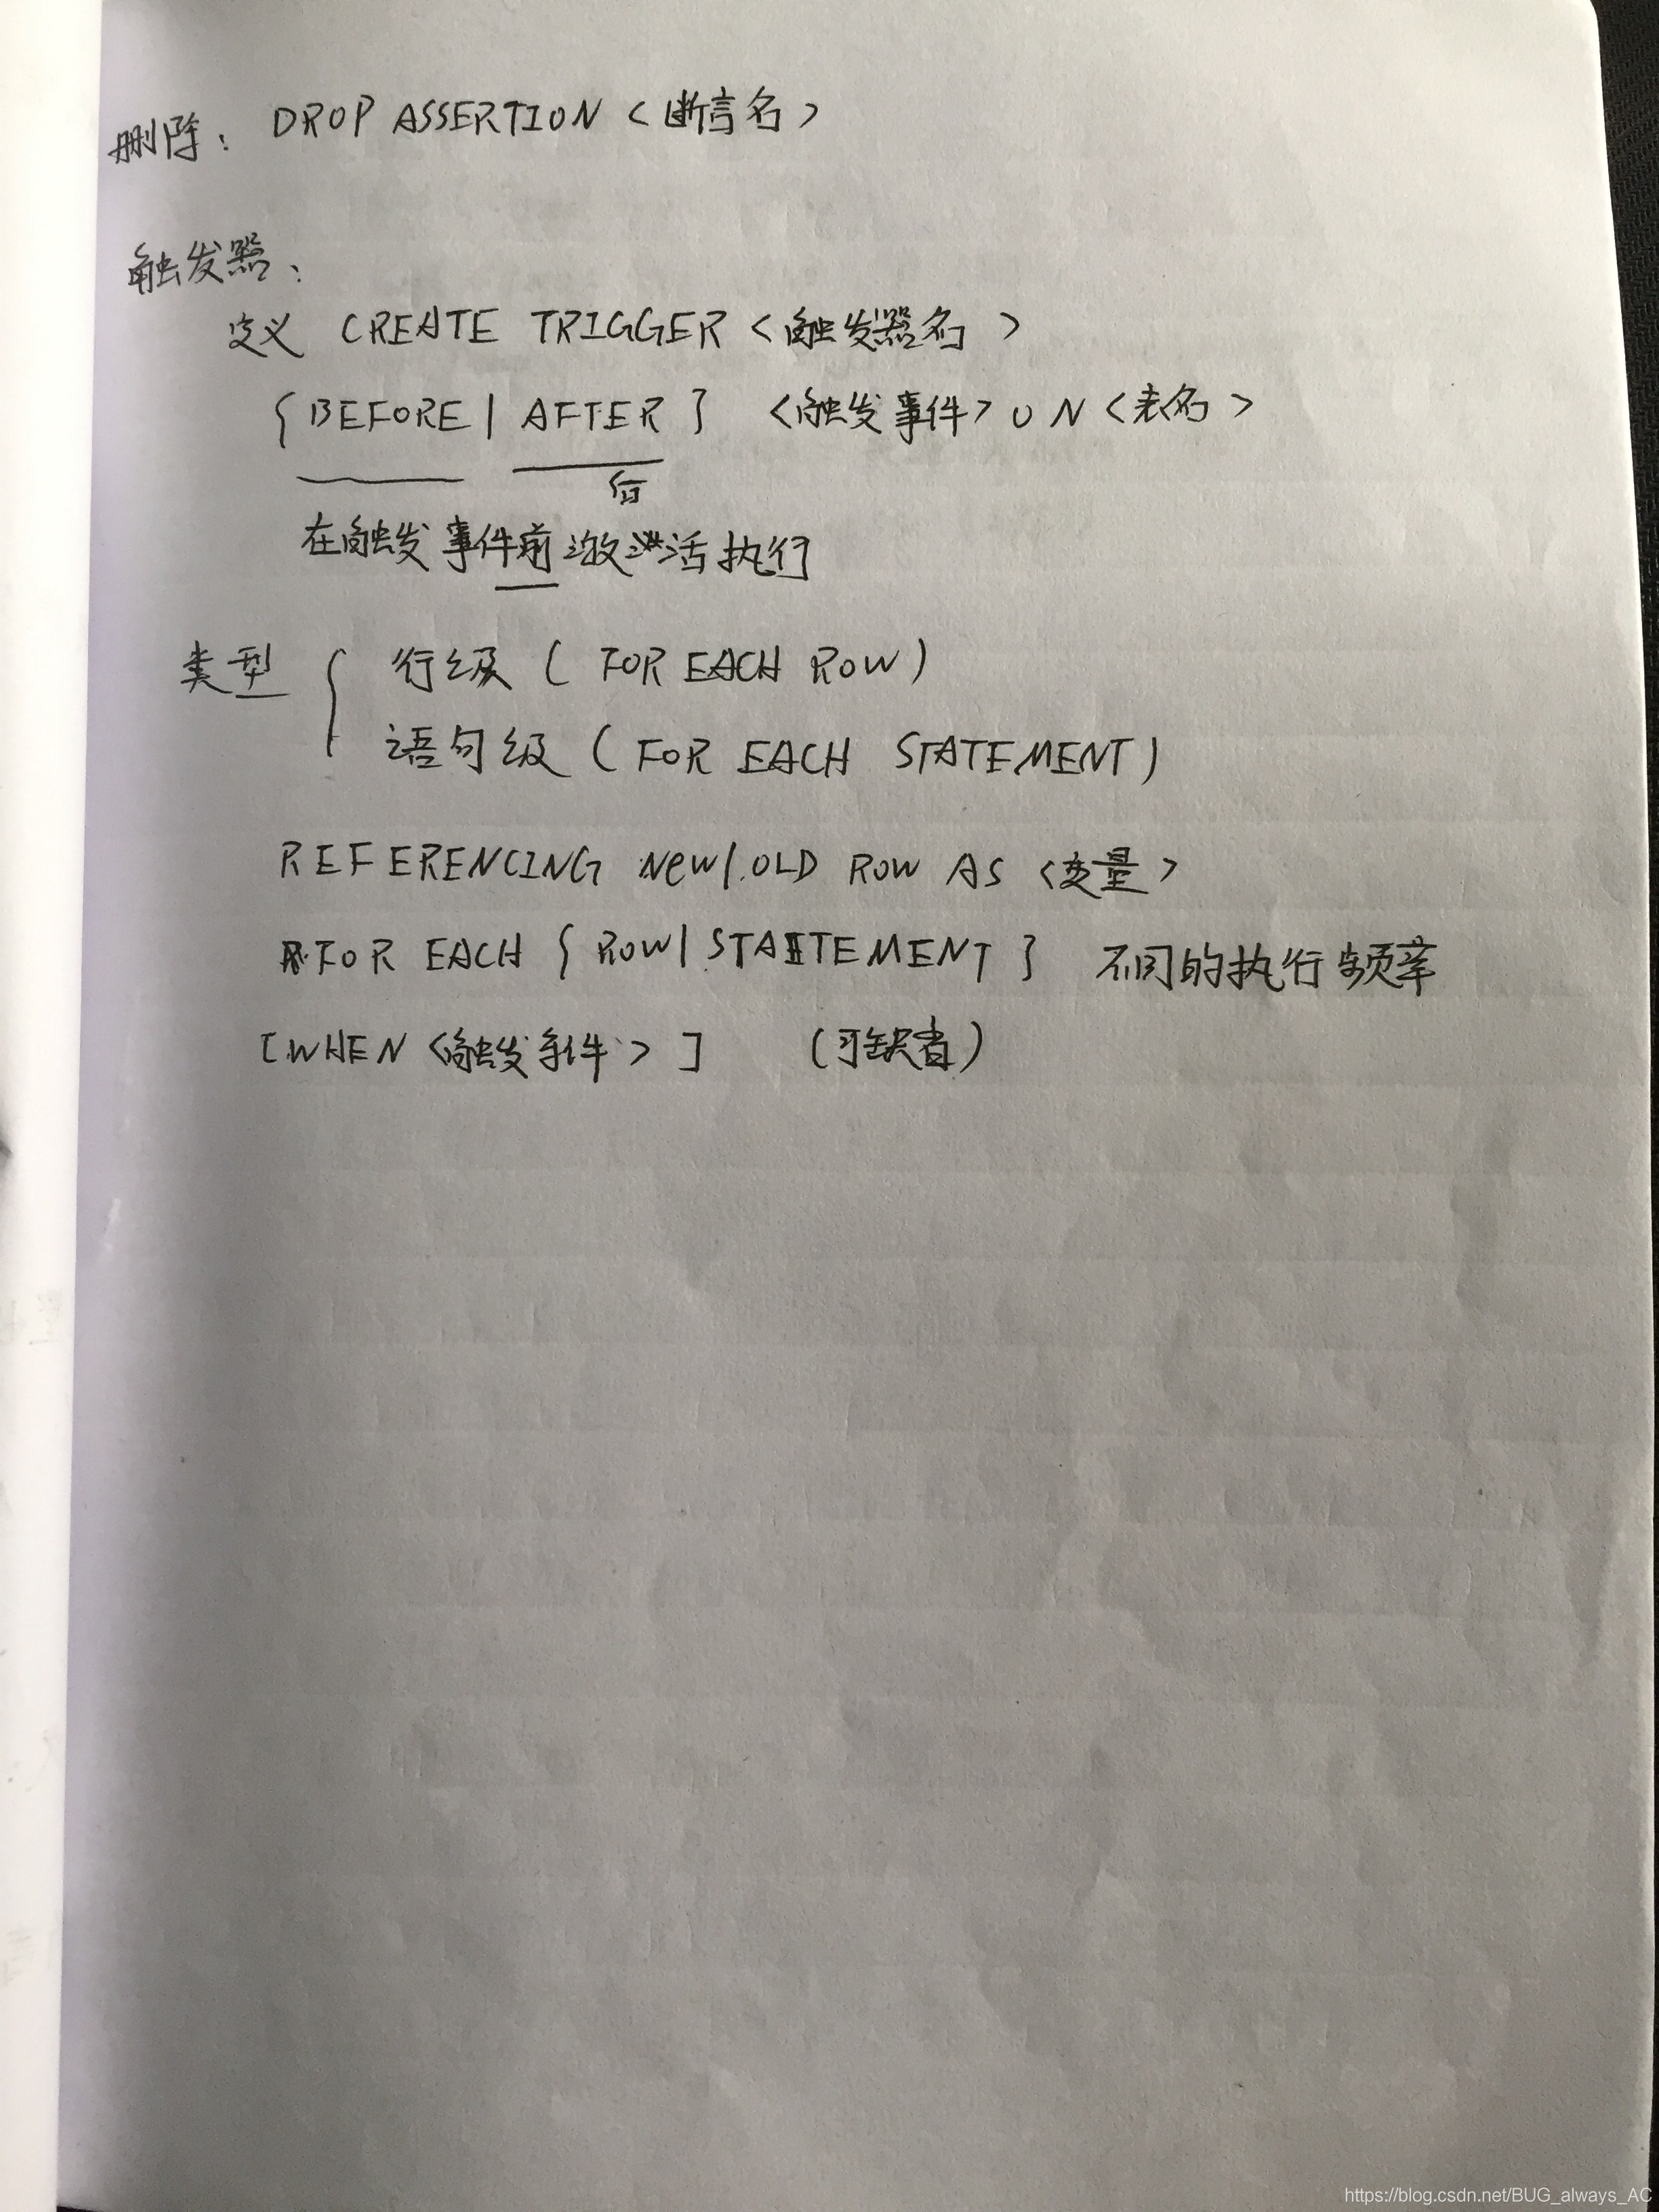 删除： DROP ASSERTION <断言名>
触发器：
定义 CREATE TRIGGER <触发器名>
{BEFORE | AFTER} <触发事件> ON <表名>
后
在触发事件前激活执行
类型 { 行级 ( FOR EACH ROW)
语句级 (FOR EACH STATEMENT)
REFERENCING NEW/OLD ROW AS <变量>
FOR EACH { ROW | STATEMENT } 不同的执行频率
[WHEN <触发条件>] (可缺省)
https://blog.csdn.net/BUG_always_AC